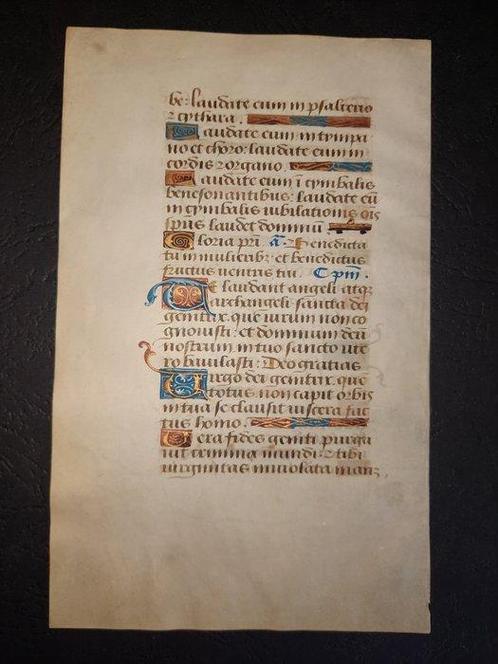 be: laudate eum in psalterio
⁊ cythara.
Laudate eum in tympa
no et choro: laudate eum in
cordis ⁊ organo.
Laudate eum ī cymbalis
benesonantibus: laudate eū
in cymbalis iubilationis oīs
spūs laudet dominū.
Gloria pri. a. Benedicta
tu in mulieribꝫ et benedictus
fructus ventris tui. Cpm.
Te laudent angeli atqꝫ
archangeli sancta dei
genitrix. que virum non co
gnouisti: et dominum deū
nostrum in tuo sancto vte
ro baiulasti: Deo gratias
Virgo dei genitrix. que
totus non capit orbis
in tua se clausit viscera fac
tus homo.
Vera fides geniti purga
uit crimina mundi: ⁊ tibi
virginitas inuiolata man